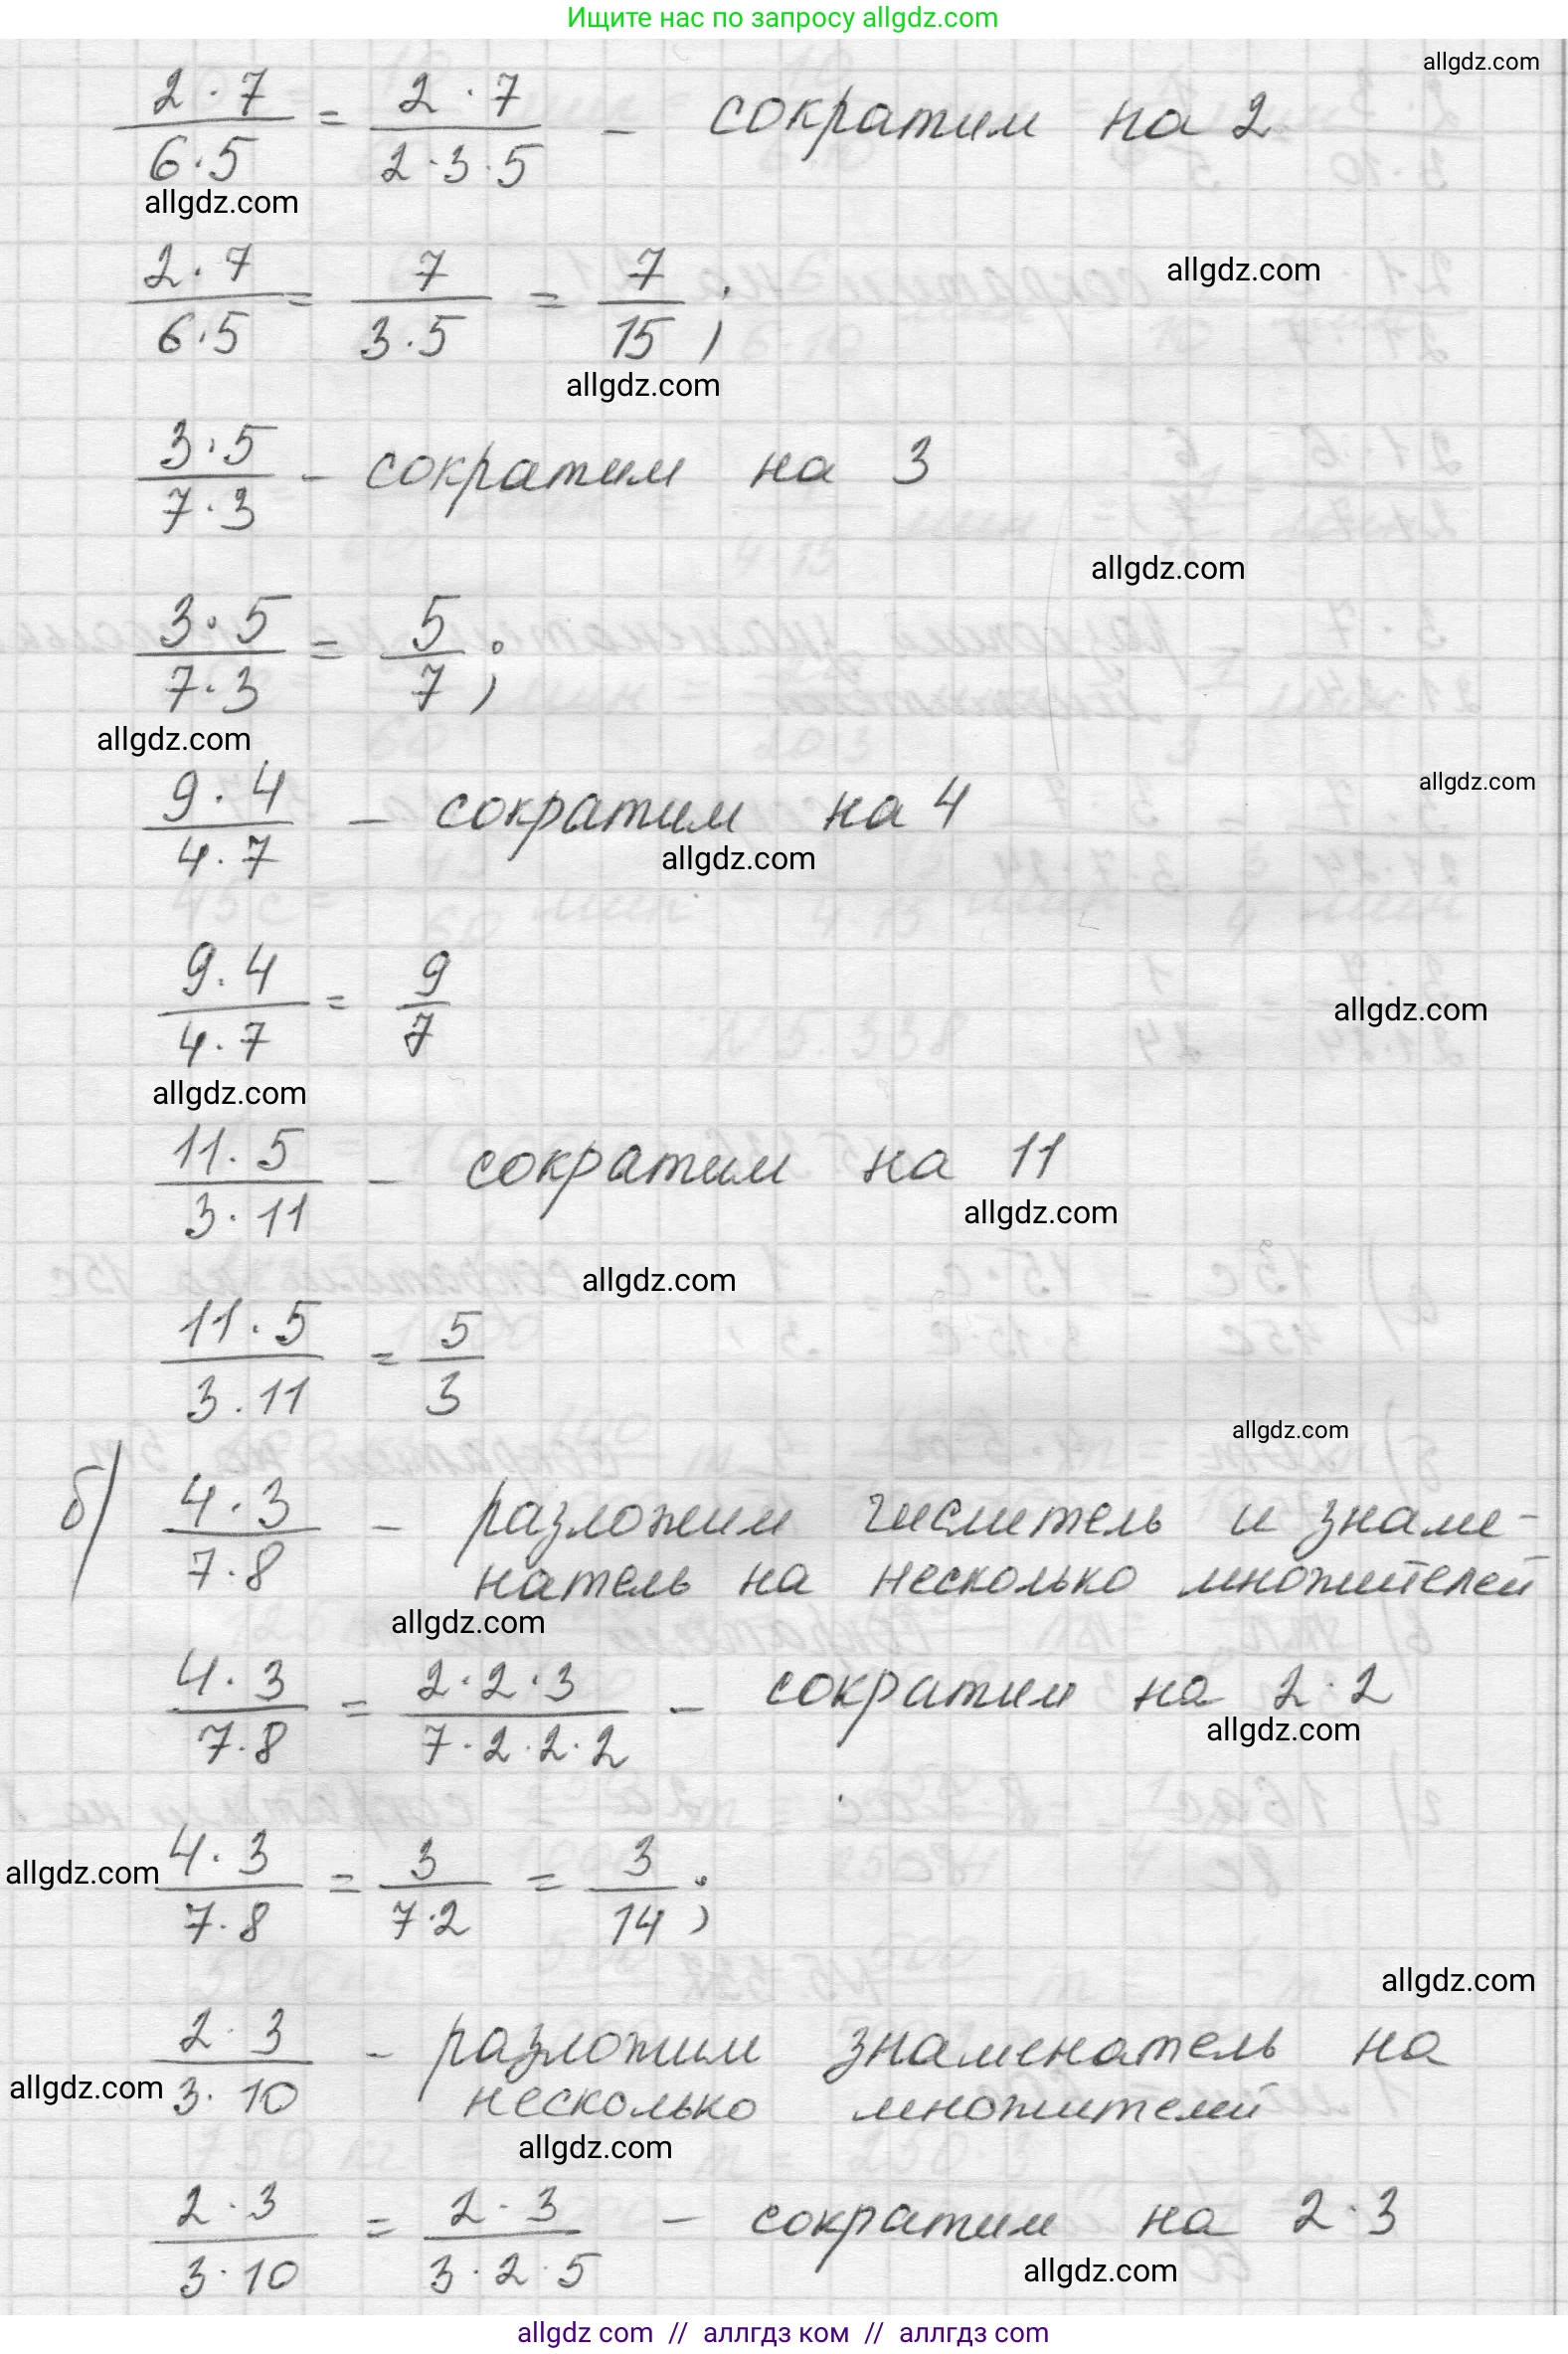 Ищите нас по запросу allgdz.com
allgdz.com
2 · 7 / 6 · 5 = 2 · 7 / 2 · 3 · 5 – сократим на 2
allgdz.com
2 · 7 / 6 · 5 = 7 / 3 · 5 = 7 / 15 ;
allgdz.com
allgdz.com
3 · 5 / 7 · 3 – сократим на 3
allgdz.com
3 · 5 / 7 · 3 = 5 / 7 ;
allgdz.com
9 · 4 / 4 · 7 – сократим на 4
allgdz.com
allgdz.com
9 · 4 / 4 · 7 = 9 / 7
allgdz.com
allgdz.com
11 · 5 / 3 · 11 – сократим на 11
allgdz.com
allgdz.com
11 · 5 / 3 · 11 = 5 / 3
allgdz.com
б) 4 · 3 / 7 · 8 – разложим числитель и знаме-
натель на несколько множителей
allgdz.com
4 · 3 / 7 · 8 = 2 · 2 · 3 / 7 · 2 · 2 · 2 – сократим на 2 · 2
allgdz.com
allgdz.com
4 · 3 / 7 · 8 = 3 / 7 · 2 = 3 / 14 ;
allgdz.com
2 · 3 / 3 · 10 – разложим знаменатель на
несколько множителей
allgdz.com
allgdz.com
2 · 3 / 3 · 10 = 2 · 3 / 3 · 2 · 5 – сократим на 2 · 3
allgdz.com
allgdz com // аллгдз ком // аллгдз com